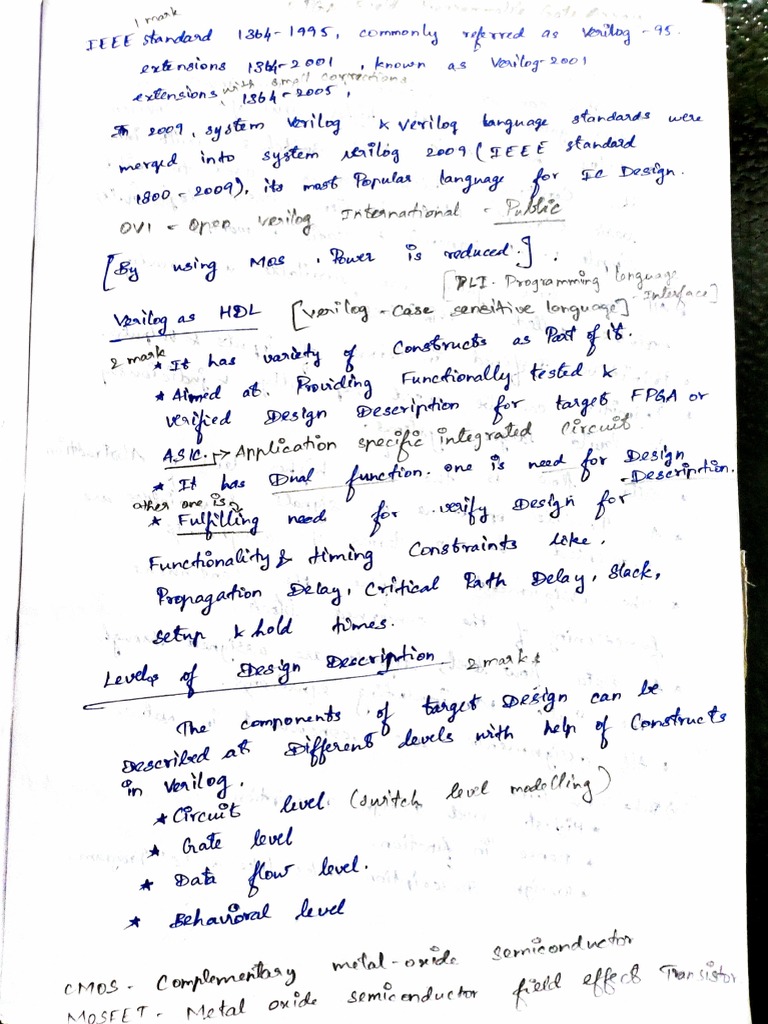 1 mark
IEEE standard 1364-1995, commonly referred as Verilog-95.
extensions 1364-2001, known as Verilog-2001
with small corrections
extensions 1364-2005,
In 2009, system Verilog & Verilog language standards were
merged into system verilog 2009 (IEEE standard
1800-2009), its most Popular language for Ic Design.
OVI - Open Verilog International - Public
[By using Mos, Power is reduced.].
[PLI - Programming language
Interface]
Verilog as HDL [Verilog - Case sensitive language]
2 mark
* It has variety of Constructs as Part of it.
* Aimed at Providing Functionally tested &
verified Design Description for target FPGA or
ASIC. → Application specific integrated Circuit
* It has Dual function. one is need for Design
-Description.
other one is
* Fulfilling need for verify Design for
Functionality & timing Constraints like.
Propagation Delay, Critical Path Delay, Slack,
setup & hold times.
Levels of Design Description 2 marks
The components of target Design can be
Described at Different levels with help of Constructs
in Verilog.
* Circuit level (switch level modelling)
* Gate level
* Data flow level.
* Behavioral level
CMOS - Complementary metal-oxide semiconductor
MOSFET - Metal oxide semiconductor field effect Transistor